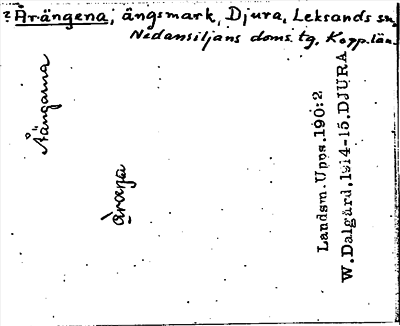 ? Årängena, ängsmark, Djura, Leksands sn,
Nedansiljans doms. tg, Kopp. län.
Åängarna
Landsm. Upps. 190:2
W. Dalgård. 1914-15. DJURA